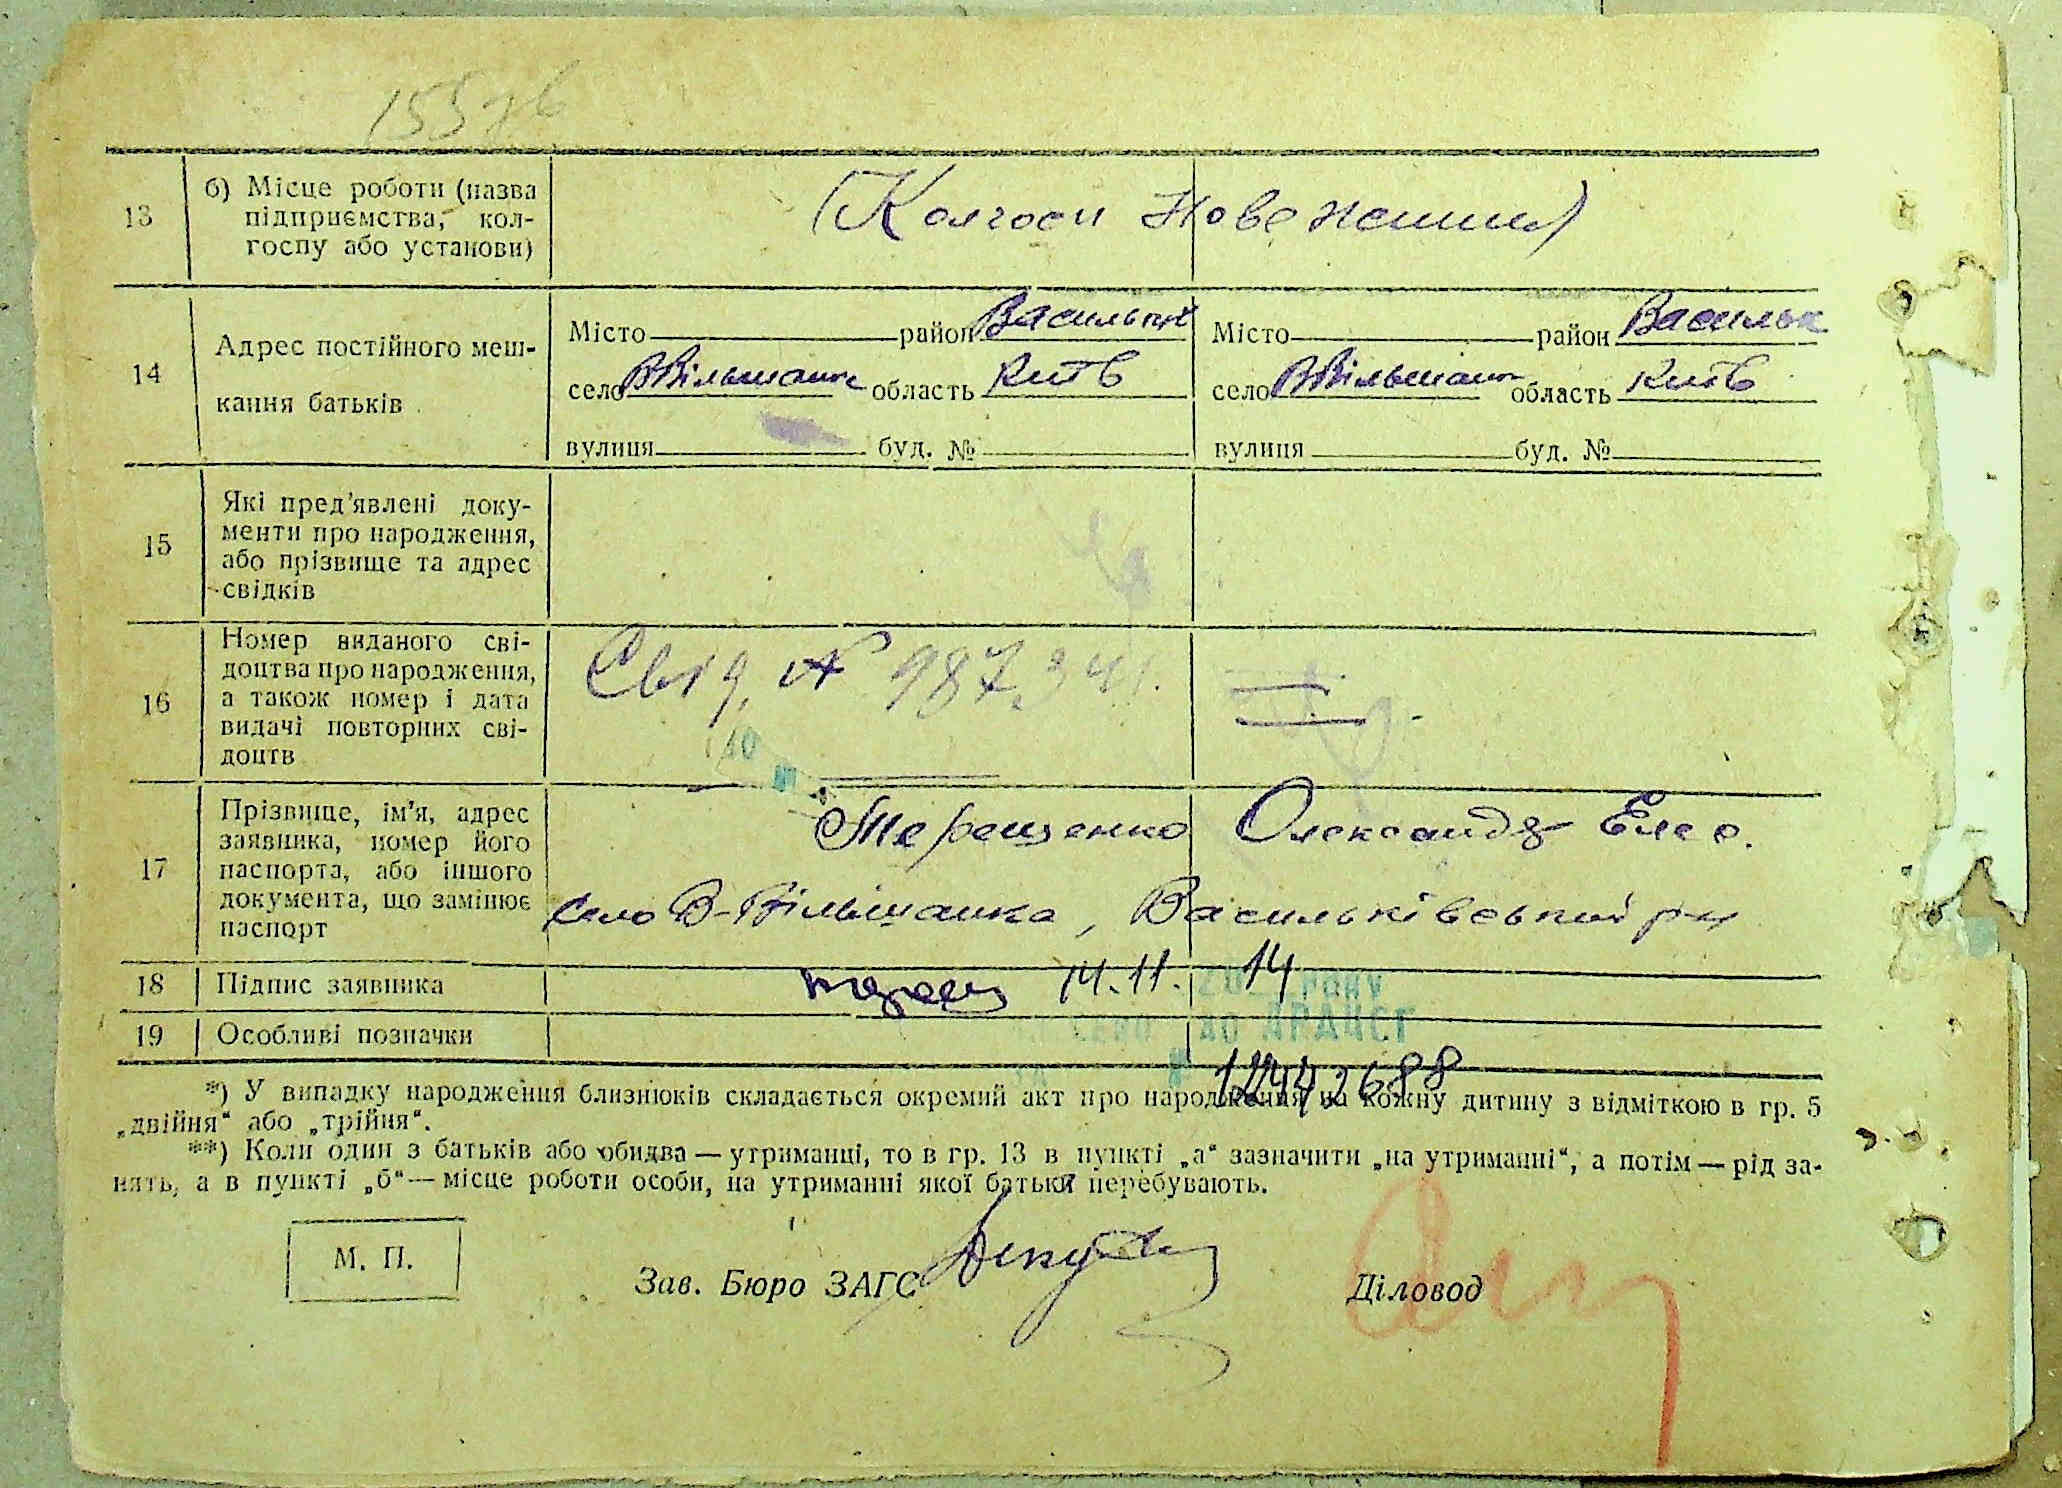 155 зв
13
б) Місце роботи (назва
підприємства, кол-
госпу або установи)
(Колгосп Нове життя)
14
Адрес постійного меш-
кання батьків
Місто район Васильк
село ВВільшанк область Київ
вулиця буд. №
Місто район Васильк
село ВВільшанк область Київ
вулиця буд. №
15
Які пред'явлені доку-
менти про народження,
або прізвище та адрес
свідків
16
Номер виданого сві-
доцтва про народження,
а також номер і дата
видачі повторних сві-
доцтв
Свід. №
17
Прізвище, ім'я, адрес
заявника, номер його
паспорта, або іншого
документа, що замінює
паспорт
Терещенко Олександр
село В-Вільшанка, Васильківський рн
18
Підпис заявника
14.11. 14
року
ДРАЦСГ
19
Особливі позначки
*) У випадку народження близнюків складається окремий акт про народження на кожну дитину з відміткою в гр. 5
„двійня“ або „трійня“.
**) Коли один з батьків або обидва — утриманці, то в гр. 13 в пункті „а“ зазначити „на утриманні“, а потім — рід за-
нять, а в пункті „б“ — місце роботи особи, на утриманні якої батьки перебувають.
М. П.
Зав. Бюро ЗАГС
Діловод